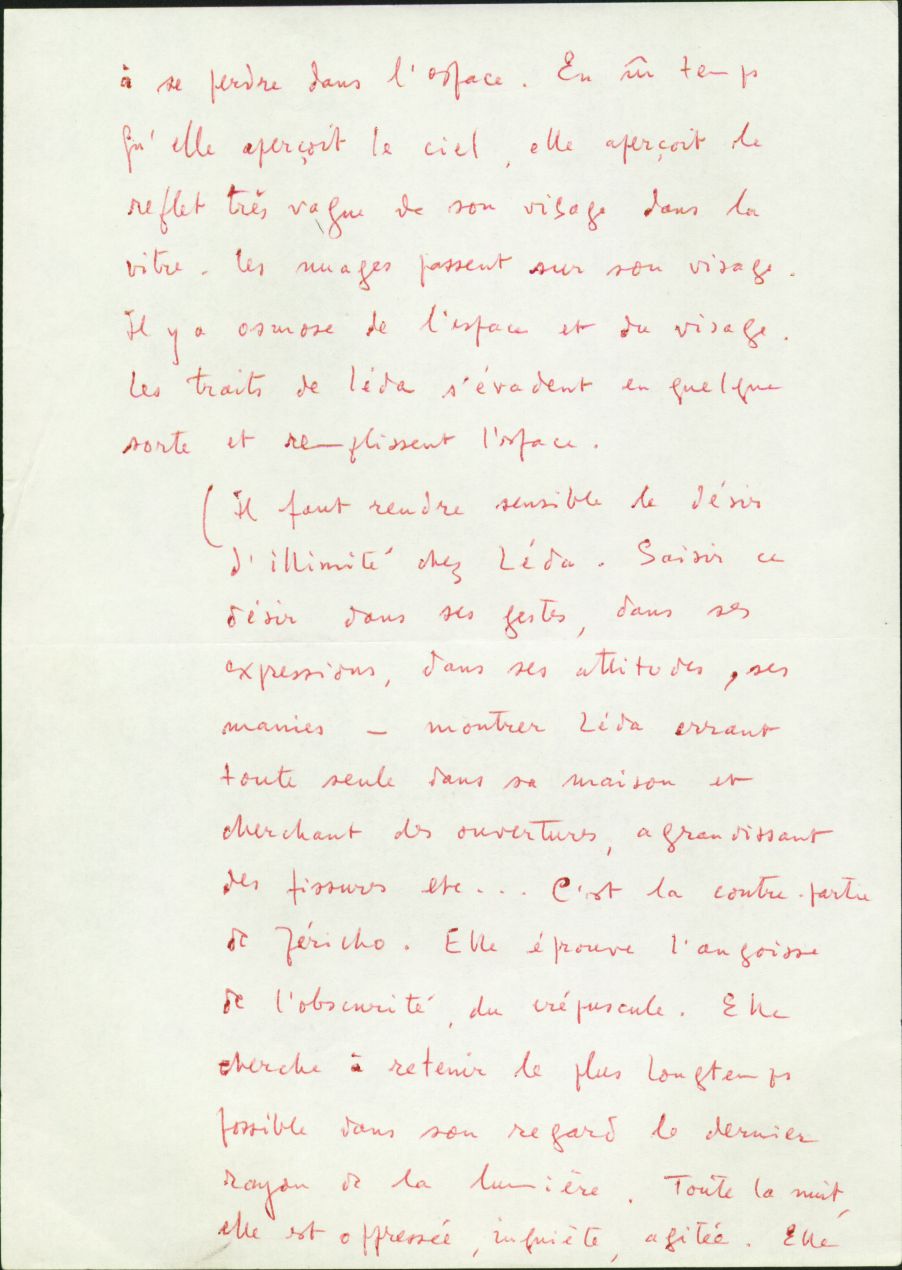 à se perdre dans l'espace. En m̂ temps
qu'elle aperçoit le ciel, elle aperçoit le
reflet très vague de son visage dans la
vitre. Les nuages passent sur son visage.
Il y a osmose de l'espace et du visage.
Les traits de Léda s'évadent en quelque
sorte et remplissent l'espace.
(Il faut rendre sensible le désir
d'illimité chez Léda. Saisir ce
désir dans ses gestes, dans ses
expressions, dans ses attitudes, ses
manies – montrer Léda errant
toute seule dans sa maison et
cherchant des ouvertures, agrandissant
des fissures etc... C'est la contre-partie
de Jéricho. Elle éprouve l'angoisse
de l'obscurité, du crépuscule. Elle
cherche à retenir le plus longtemps
possible dans son regard le dernier
rayon de la lumière. Toute la nuit,
elle est oppressée, inquiète, agitée. Elle